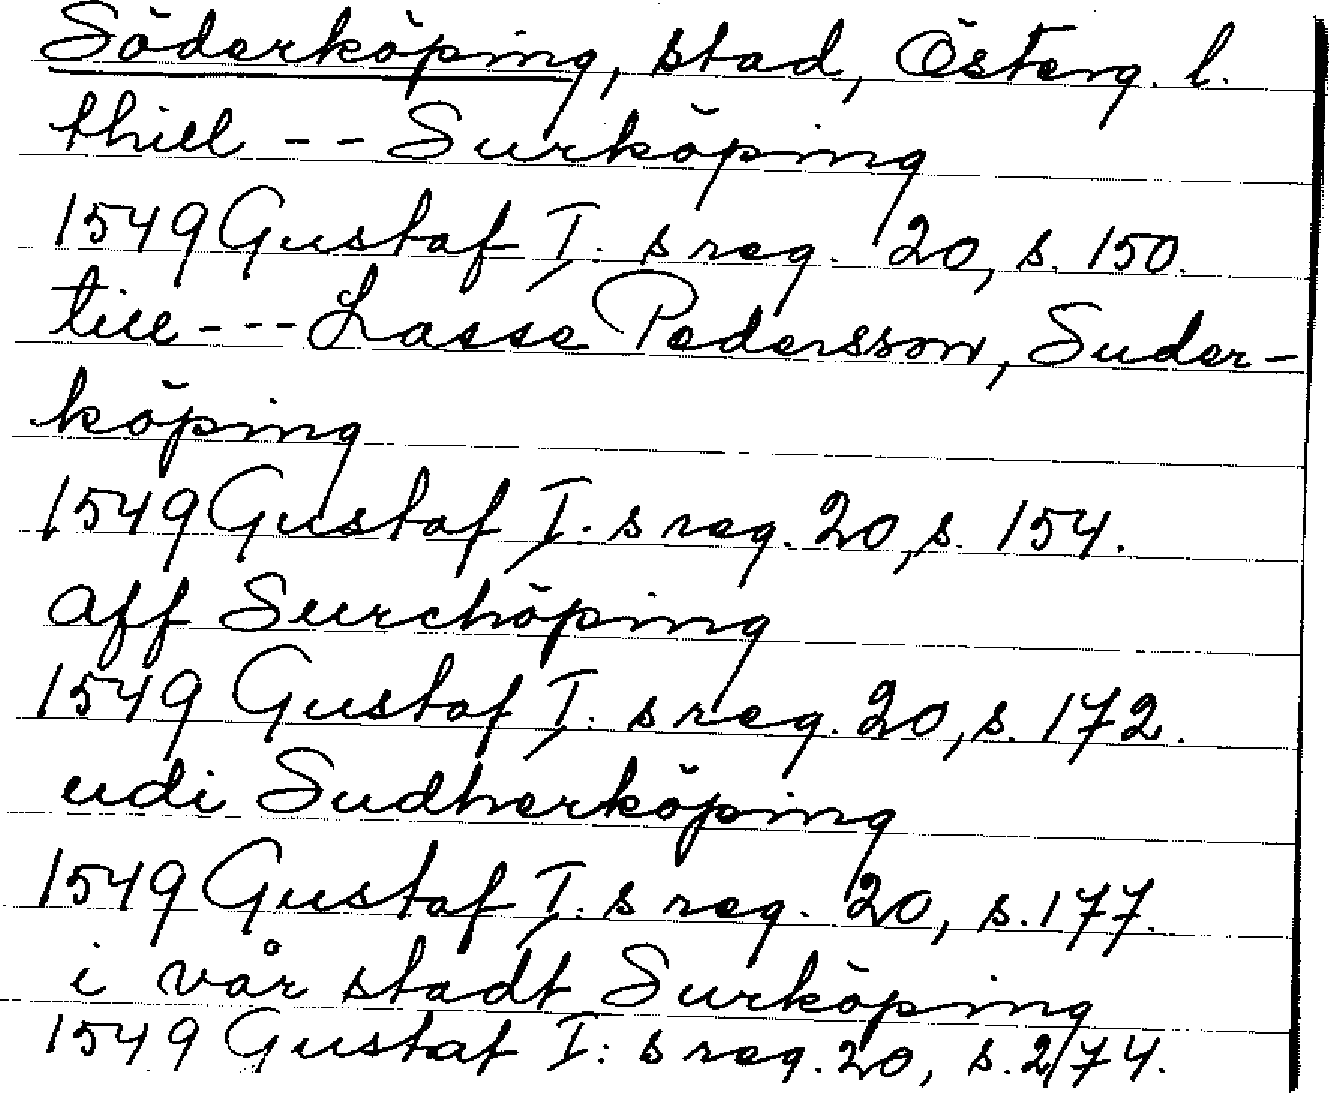 Söderköping, stad, Österg. l.
thill -- Surköping
1549 Gustaf I: s reg. 20, s. 150.
till --- Lasse Pedersson, Suder-
köping
1549 Gustaf I: s reg. 20, s. 154.
aff Surchöping
1549 Gustaf I: s reg. 20, s. 172.
udi Sudherköping
1549 Gustaf I: s reg. 20, s. 177.
i vår stadt Surköping
1549 Gustaf I: s reg. 20, s. 274.